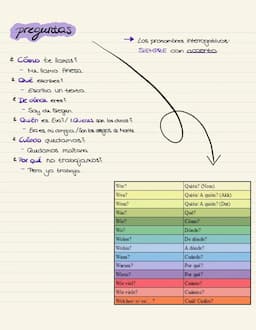 preguntas
→ Los pronombres interrogativos
SIEMPRE con acento
¿Cómo te llamas?
- Me llamo Finesa.
¿Qué escribes?
- Escribo un texto.
¿De dónde eres?
- Soy de Siegen.
¿Quién es Eva? / ¿Quiénes son los chicos?
- Eva es mi amiga. / Son los amigos de Marta.
¿Cuándo quedamos?
- Quedamos mañana.
¿Por qué no trabajamos?
- Pero ya trabajo.
Wer? Quién? (Nom)
Wen? Quién/ A quién? (Akk)
Wem? Quién/ A quién? (Dat)
Was? Qué?
Wie? Cómo?
Wo? Dónde?
Woher? De dónde?
Wohin? A dónde?
Wann? Cuándo?
Warum? Por qué?
Wieso? Por qué?
Wie viel? Cuánto?
Wie viele? Cuántos?
Welcher/-e/-es...? Cuál/ Cuáles?